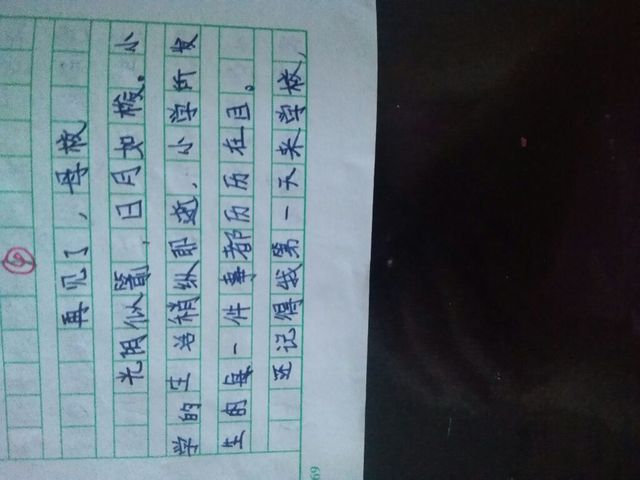 再见了，母校
光阴似箭，日月如梭。小
学的生活稍纵即逝，小学所发
生的每一件事都历历在目。
还记得我第一天来学校，